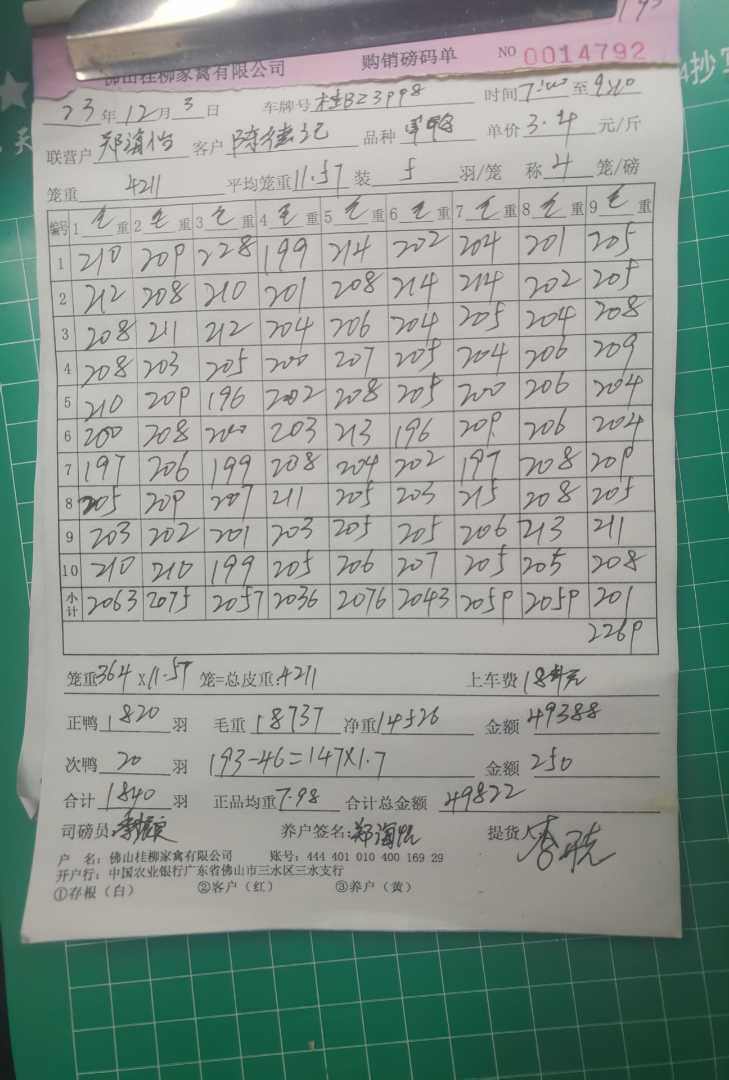 佛山桂柳家禽有限公司 购销磅码单 NO 0014792
23年12月3日 车牌号桂B23998 时间7:00至9:40
联营户 客户陈德记 品种 单价3.4元/斤
笼重4211 平均笼重11.57装5羽/笼 称4笼/磅
编号 1毛重 2毛重 3毛重 4毛重 5毛重 6毛重 7毛重 8毛重 9毛重
1 210 209 228 199 214 202 204 201 205
2 212 208 210 201 208 214 214 202 205
3 208 211 212 204 206 204 205 204 208
4 208 203 205 200 207 205 204 206 209
5 210 209 196 202 208 205 200 206 204
6 200 208 200 203 213 196 209 206 204
7 197 206 199 208 204 202 197 208 209
8 205 209 207 211 205 203 215 208 205
9 203 202 201 203 205 205 206 213 211
10 210 210 199 205 206 207 205 205 208
小计 2063 2075 2057 2036 2076 2043 2059 2059 201
2269
笼重364×11.57笼=总皮重:4211 上车费184元
正鸭1820羽 毛重18737净重14526 金额49388
次鸭20羽 193-46=147×1.7 金额250
合计1840羽 正品均重7.98 合计总金额49822
司磅员: 养户签名: 提货人
户 名:佛山桂柳家禽有限公司 账号:444 401 010 400 169 29
开户行:中国农业银行广东省佛山市三水区三水支行
①存根(白) ②客户(红) ③养户(黄)